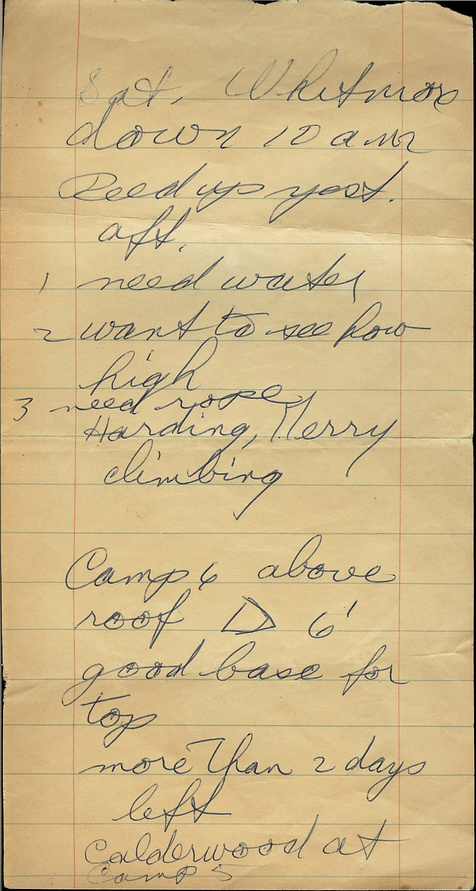 Sat, Whitmore
down 10 am
Reed up yest.
aft.
1 need water
2 want to see how
high
3 need rope
Harding, Merry
climbing
Camp 6 above
roof 6'
good base for
top
more than 2 days
left
Calderwood at
Camp 5